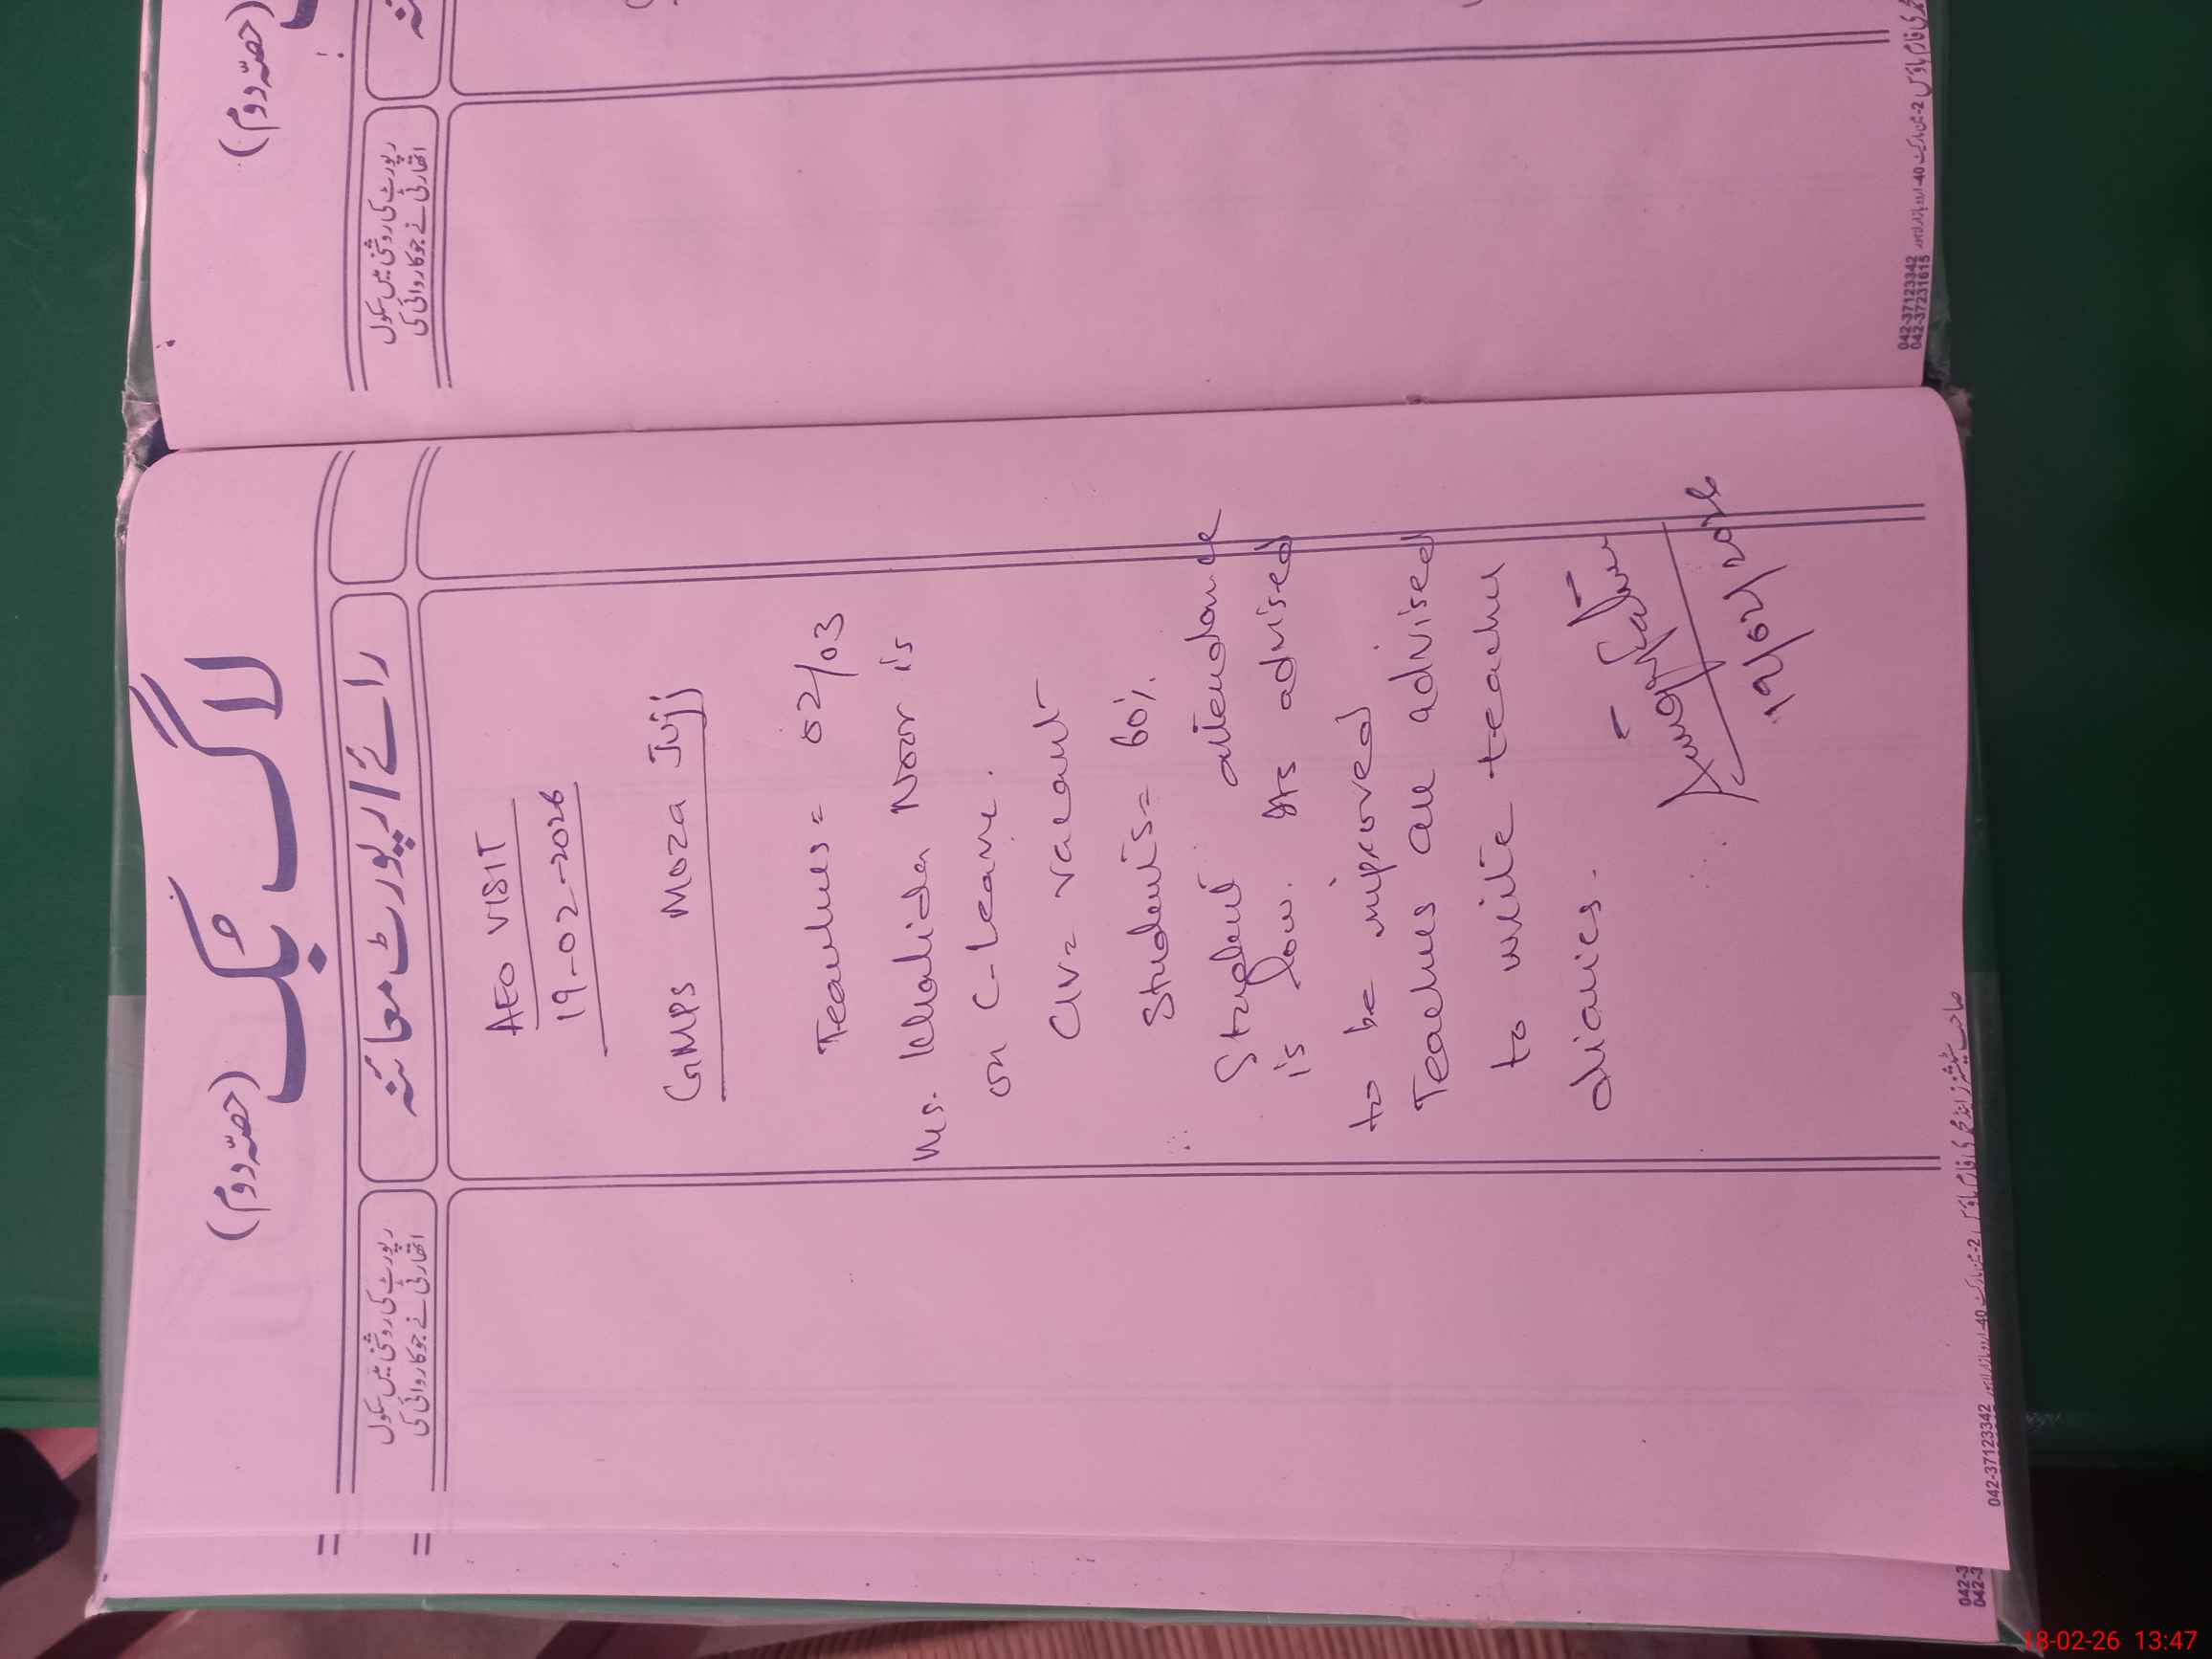 لاگ بک (حصّہ دوم)
رائے / رپورٹ معائنہ
رپورٹ کی روشنی میں سکول
اتھارٹی نے جو کاروائی کی
AEO VISIT
19-02-2026
GMPS Moza Jujj
Teachers = 02/03
Ms. Khalida Noor is
on C-Leave.
CIV = vacant
Students = 60%
Student attendance
is low. Its advised
to be improved
Teachers are advised
to write teacher
diaries.
19/02/2026
042-37123342
(حصّہ دوم)
رپورٹ کی روشنی میں سکول
اتھارٹی نے جو کاروائی کی
042-37123342
042-37231615
18-02-26 13:47